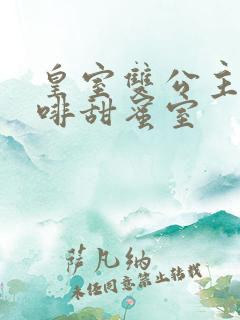 皇室雙公主
啡甜蜜室
萨凡纳
未经同意禁止转载